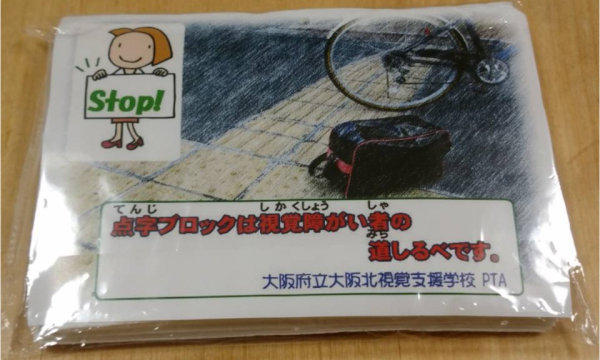 Stop!
てんじ しかくしょう しゃ
点字ブロックは視覚障がい者の
みち
道しるべです。
大阪府立大阪北視覚支援学校 PTA